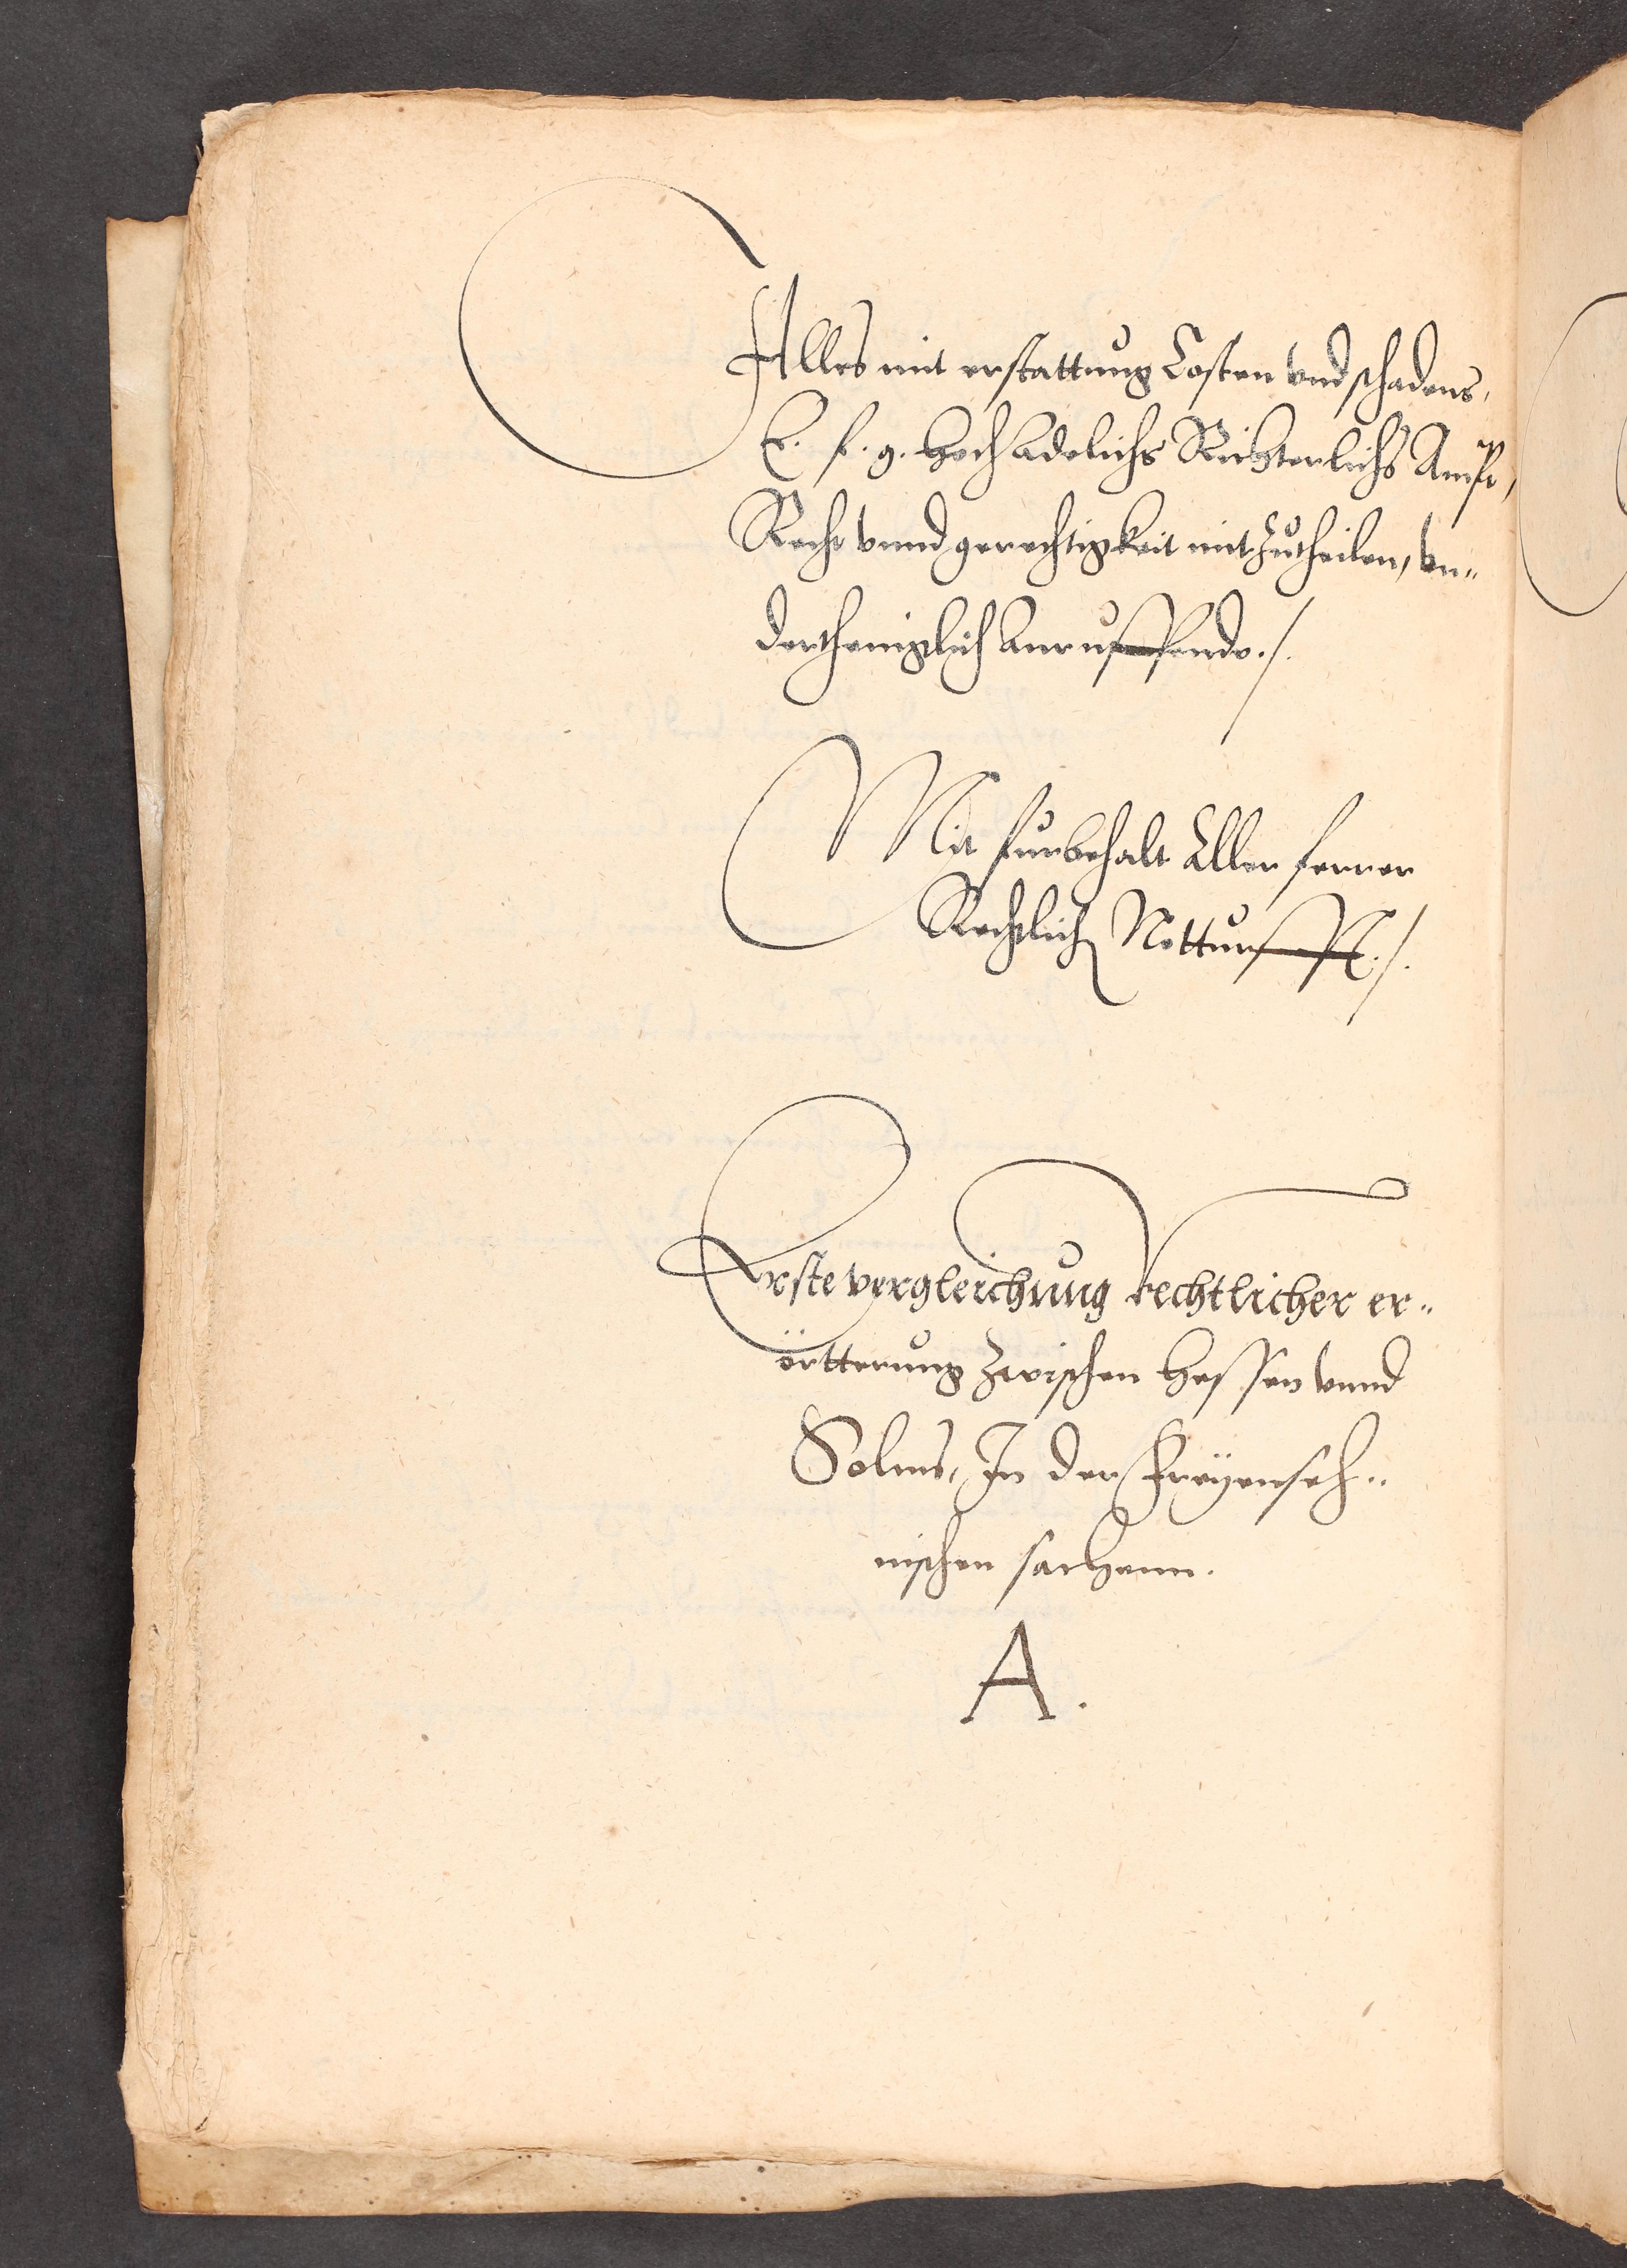 Alles mit erstattung Costen vnd schadens,
E. f. g. hochadelichs Richterlichs Ampt,
Recht vnnd gerechtigkeit mitzutheilen, vn„
dertheniglich anruffende./.
Mit furbehalt aller ferner
Rechtlich Notturfft./.
Erste vergleichung rechtlicher er„
örtterung zwischen Hessen vnnd
Solms, In der Freyenseh„
nischen sachenn.
A.